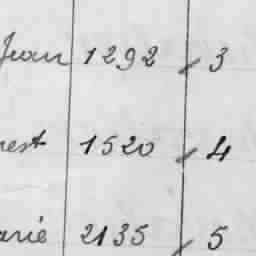 Jean 1292 3
nest 1520 4
arie 2135 5